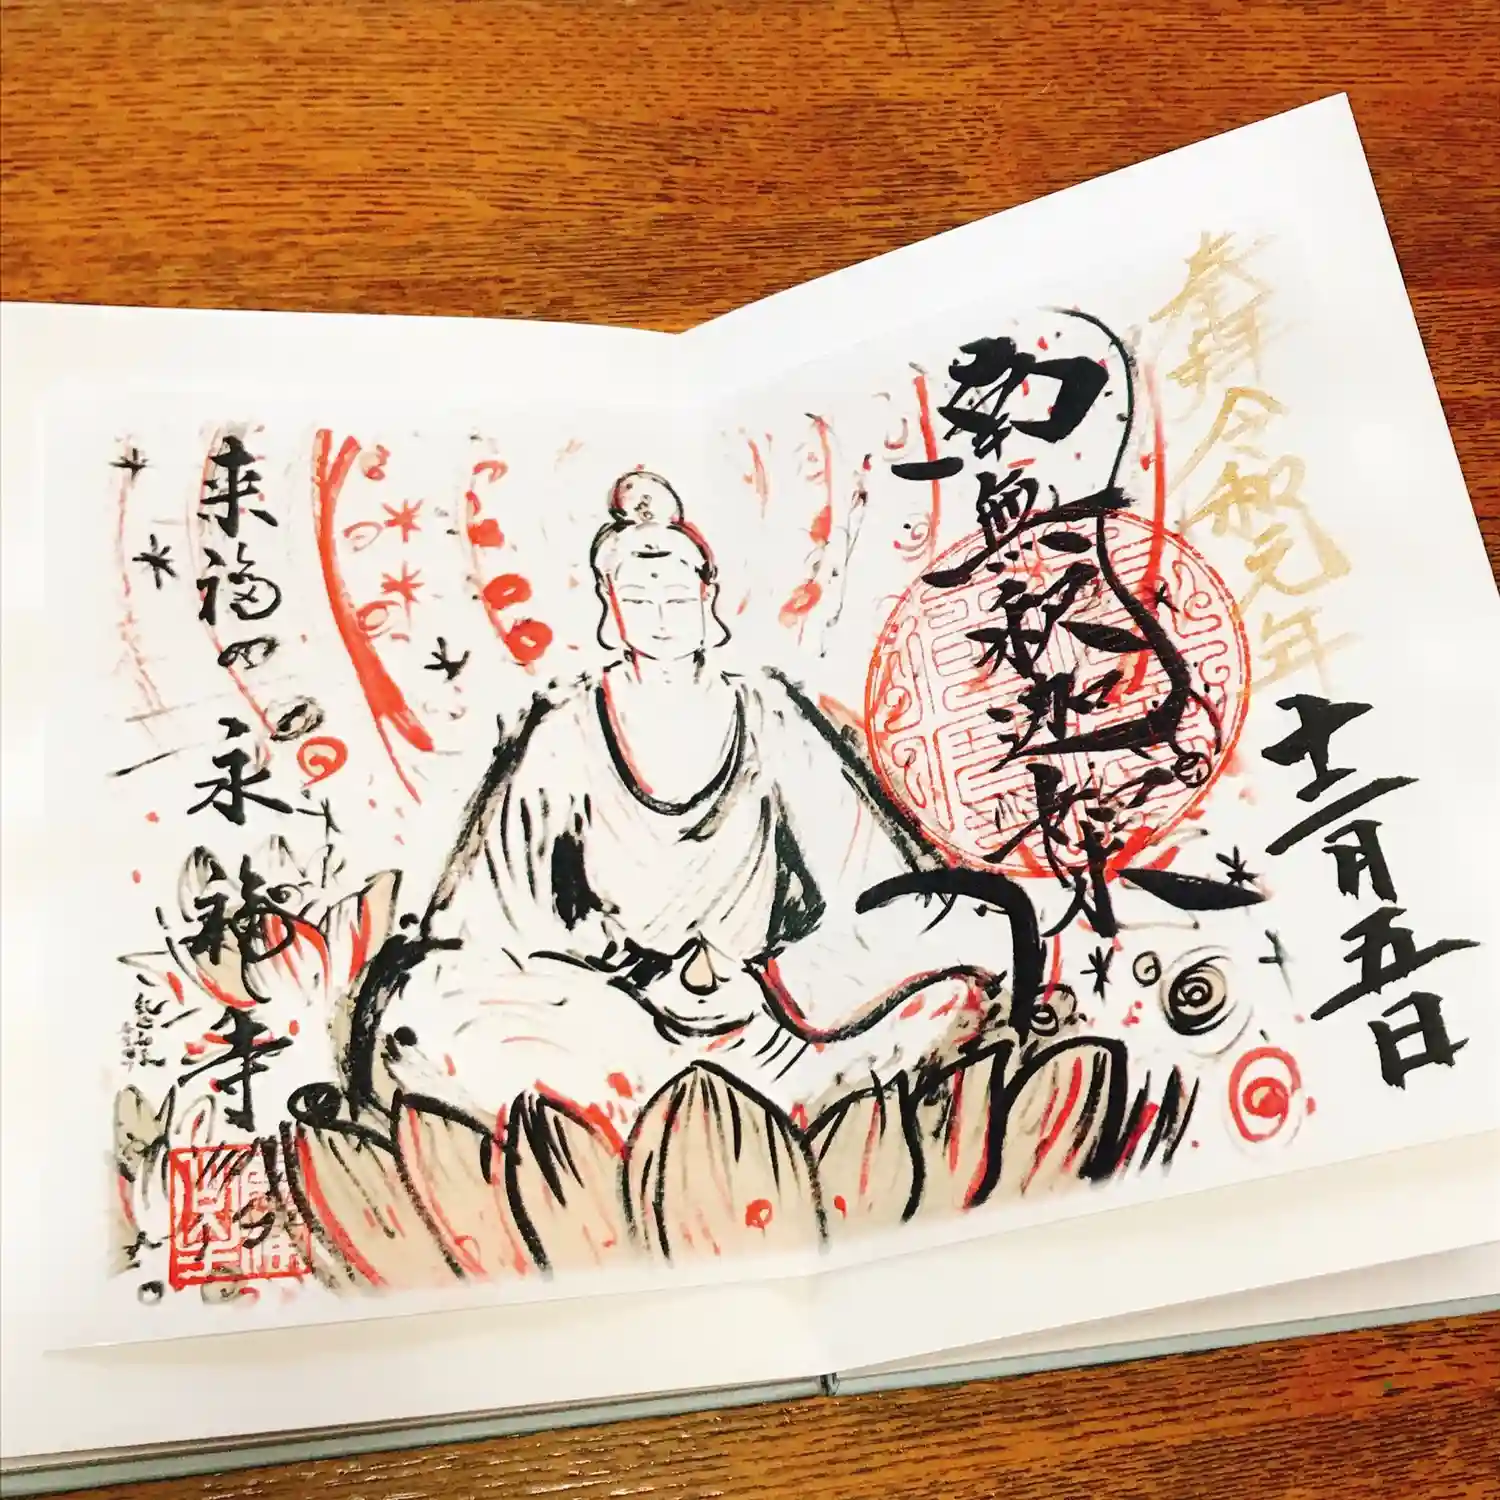 奉拝 令和元年
十二月五日
南無釈迦如来
来福の
永福寺